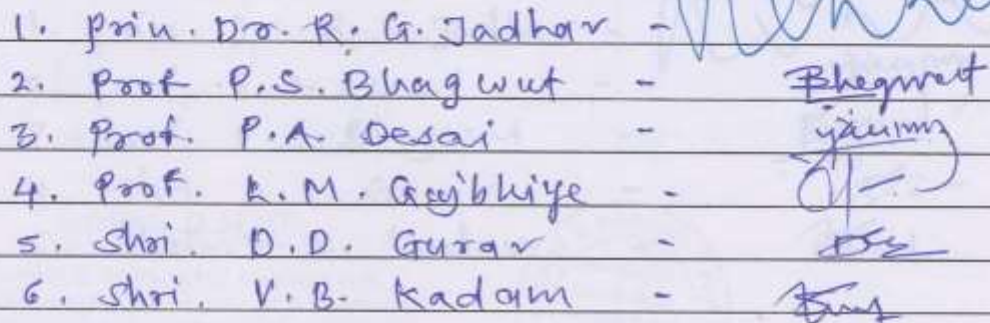 1. Prin. Dr. R. G. Jadhav -
2. Prof P.S. Bhagwut - Bhagwat
3. Prof. P.A. Desai -
4. Prof. L. M. Gajbhiye -
5. Shri. D.D. Gurav -
6. Shri. V. B. Kadam -